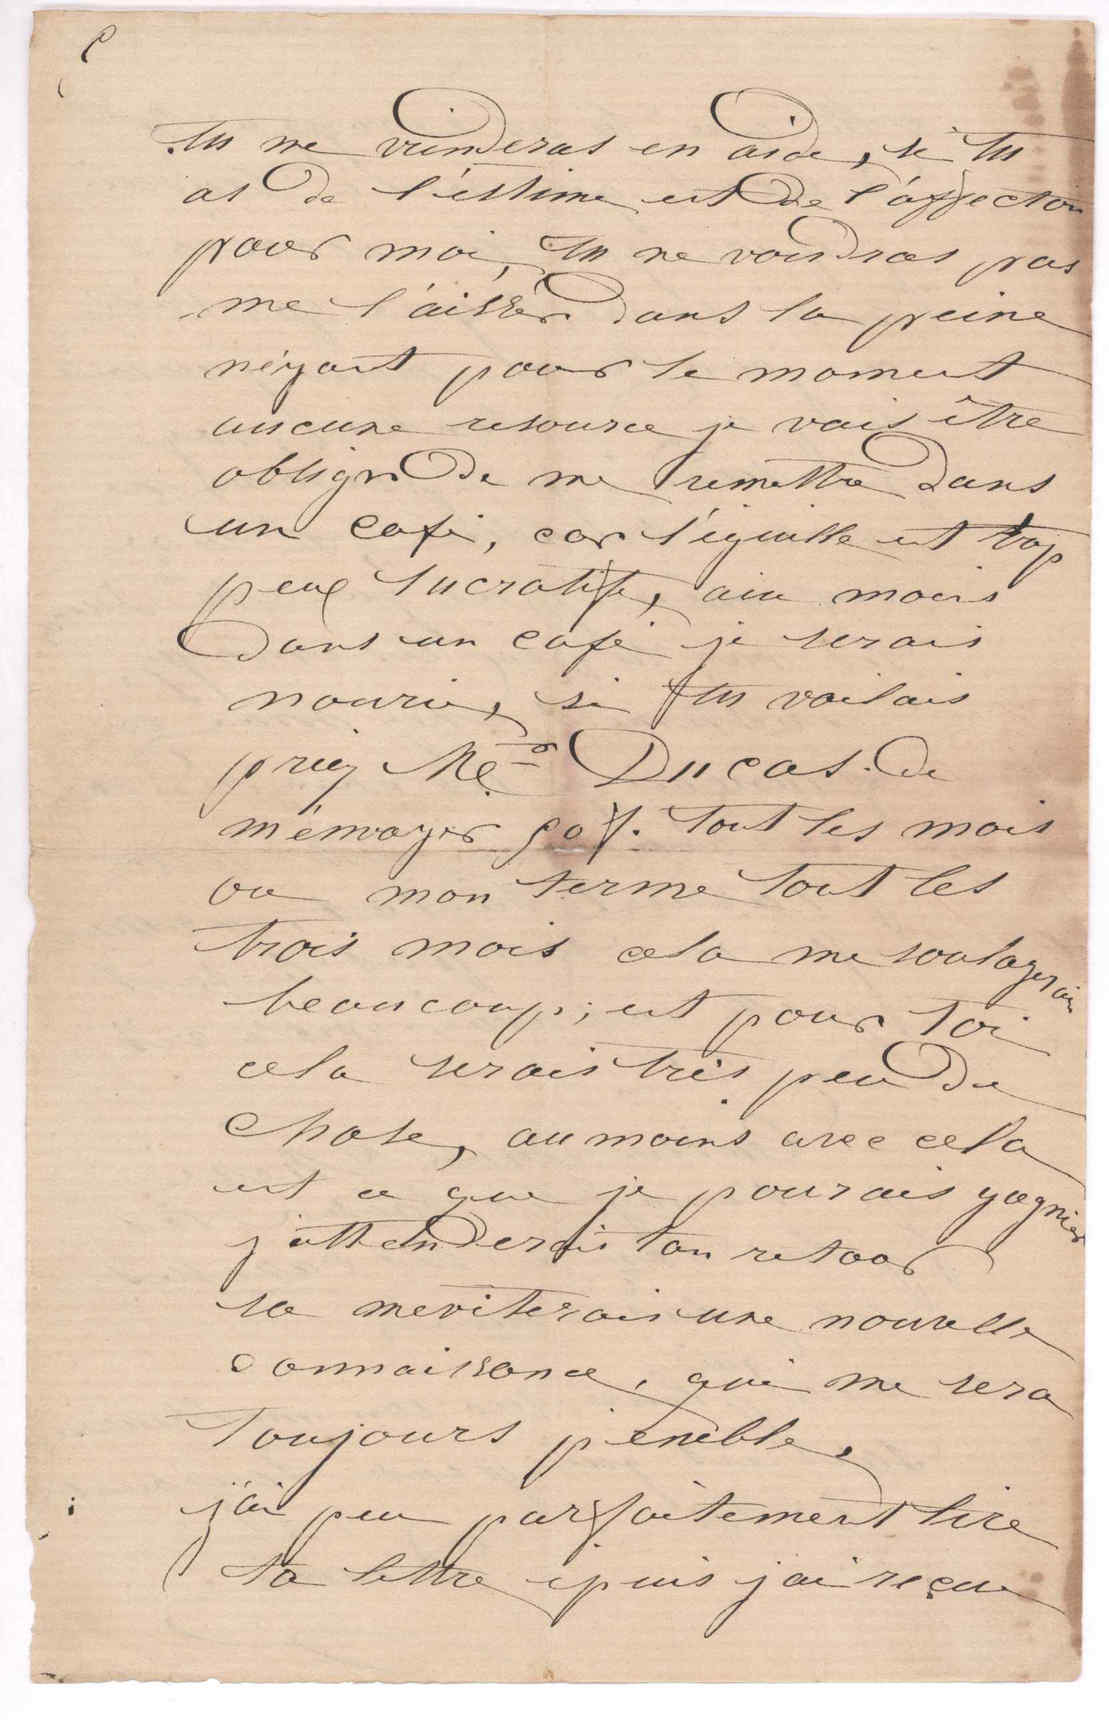 tu me vienderas en aide, si tu
as de l'estime et de l'affection
pour moi, tu ne voudras pas
me l'aisser dans la peine
n'éyant pour le moment
aucune resource je vais être
obligée de me remettre dans
un café, car l'éguille est trop
peux lucratife, aux moins
dans un café je serais
nourie, si tu voulais
priez Mr Ducas de
m'envoyer 50f. tout les mois
ou mon terme tout les
trois mois cela me soulagerais
beaucoup; et pour toi
cela serais très peu de
chose, au moins avec cela
et ce que je pourais gagnier
j'attenderais ton retour
sa meviterais une nouvelle
connaissance, qui me sera
toujours penible,
j'ai peu parfaitement lire
ta lettre puis j'ai reçue